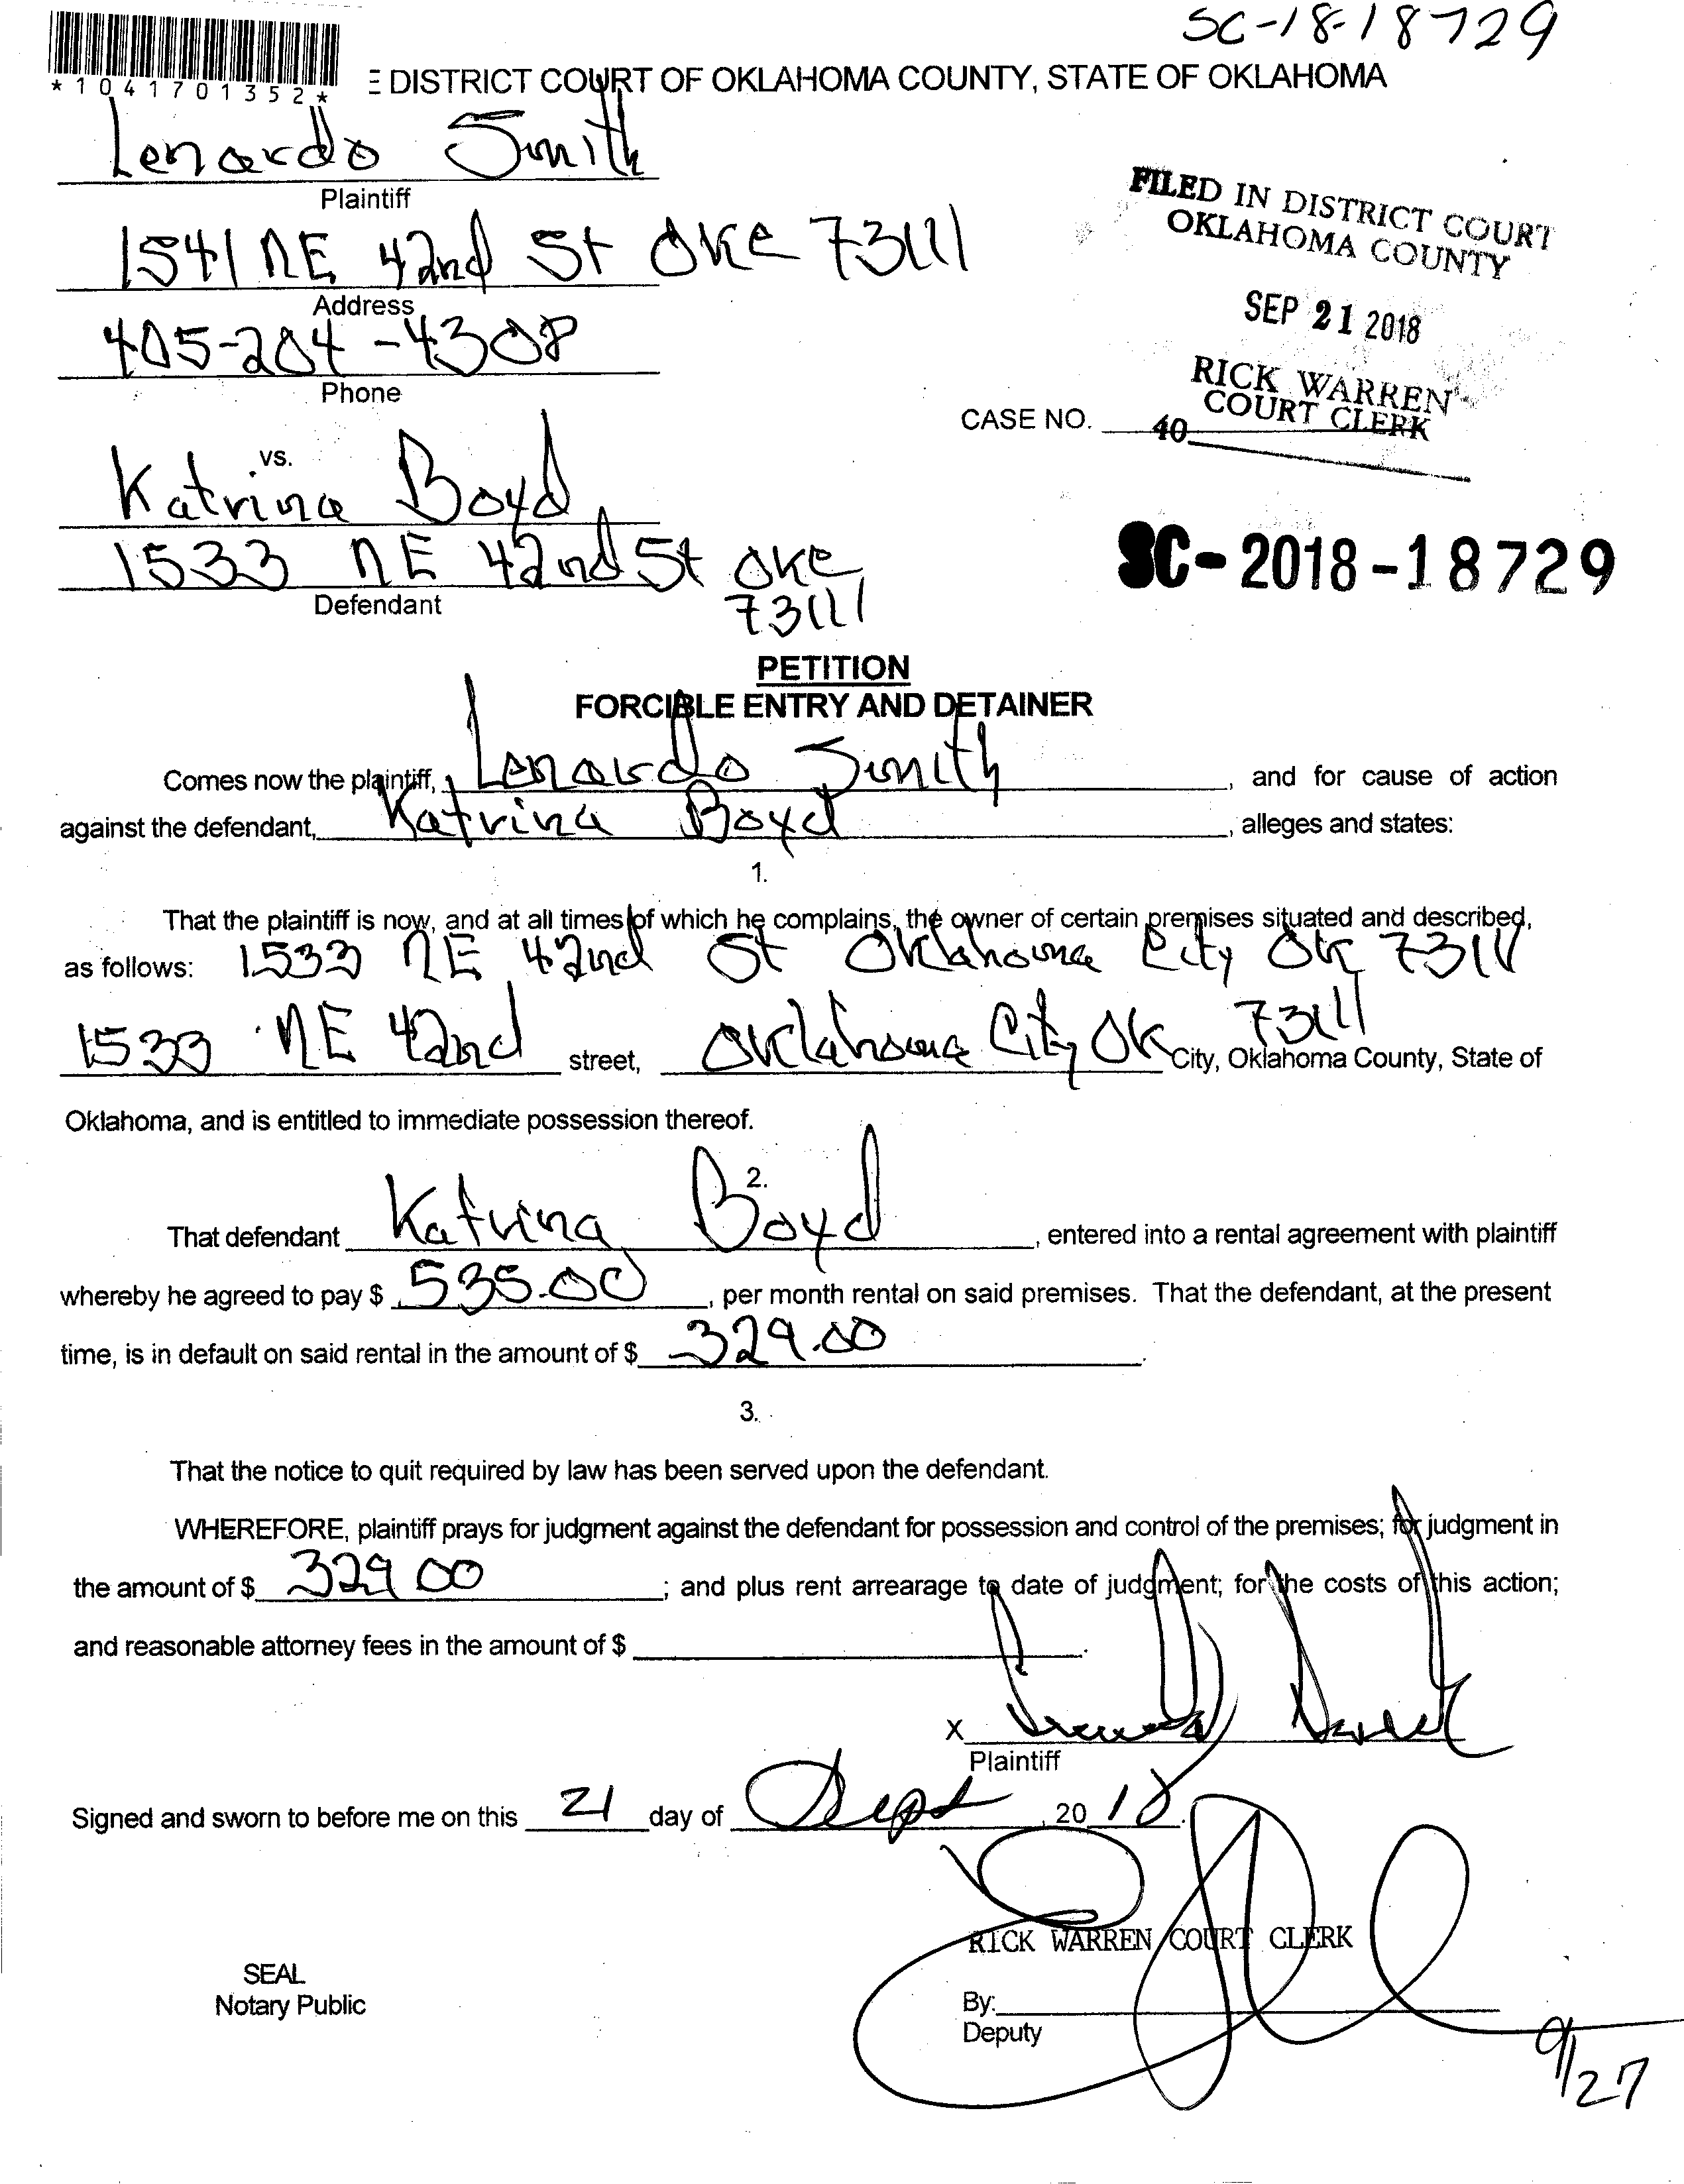 SC-18-18729
*1041701352*
E DISTRICT COURT OF OKLAHOMA COUNTY, STATE OF OKLAHOMA
Lenardo Smith
Plaintiff
1541 NE 42nd St OKC 73111
Address
405-204-4308
Phone
FILED IN DISTRICT COURT
OKLAHOMA COUNTY
SEP 21 2018
RICK WARREN
COURT CLERK
CASE NO. 40
vs.
Katrina Boyd
1533 NE 42nd St OKC
73111
Defendant
SC-2018-18729
PETITION
FORCIBLE ENTRY AND DETAINER
Comes now the plaintiff, Lenardo Smith, and for cause of action
against the defendant, Katrina Boyd, alleges and states:
1.
That the plaintiff is now, and at all times of which he complains, the owner of certain premises situated and described,
as follows: 1533 NE 42nd St Oklahoma City OK 73111
1533 NE 42nd street, Oklahoma City OK 73111 City, Oklahoma County, State of
Oklahoma, and is entitled to immediate possession thereof.
2.
That defendant Katrina Boyd, entered into a rental agreement with plaintiff
whereby he agreed to pay $ 535.00, per month rental on said premises. That the defendant, at the present
time, is in default on said rental in the amount of $ 329.00.
3.
That the notice to quit required by law has been served upon the defendant.
WHEREFORE, plaintiff prays for judgment against the defendant for possession and control of the premises; for judgment in
the amount of $ 329 00; and plus rent arrearage to date of judgment; for the costs of this action;
and reasonable attorney fees in the amount of $ .
X
Plaintiff
Signed and sworn to before me on this 21 day of Sept, 2018.
RICK WARREN COURT CLERK
SEAL
Notary Public
By:
Deputy
9/27